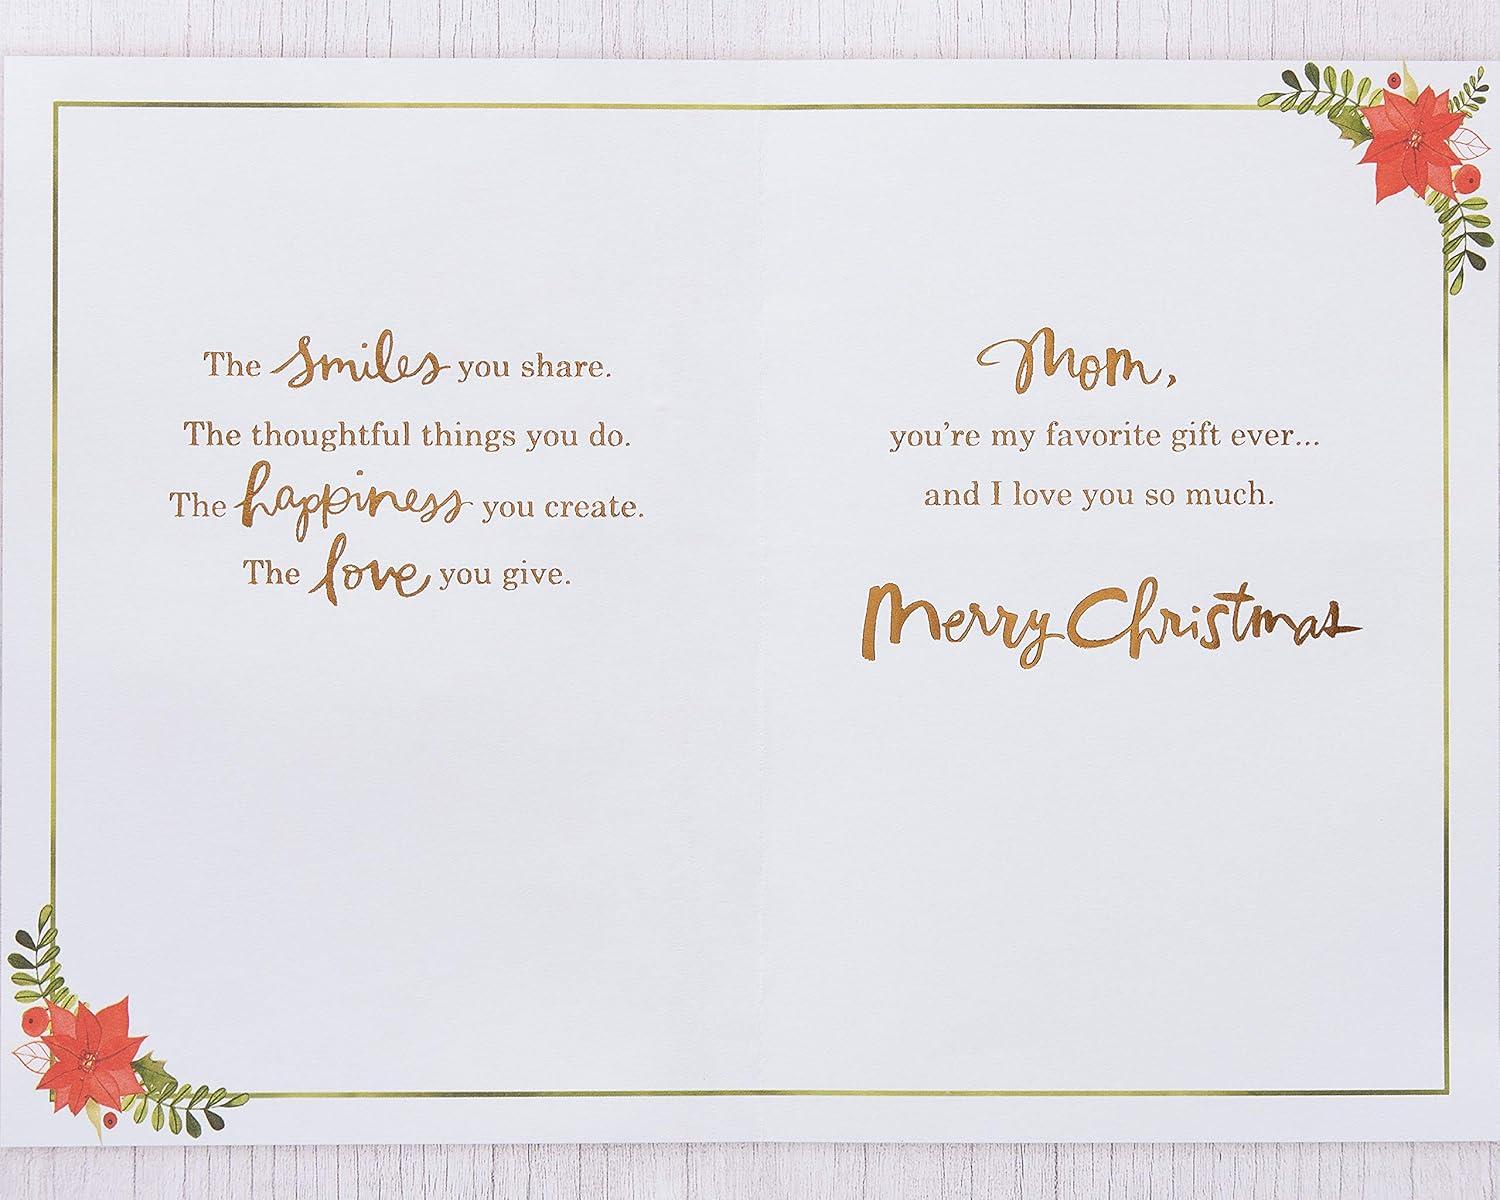 The smiles you share.
The thoughtful things you do.
The happiness you create.
The love you give.
Mom,
you're my favorite gift ever...
and I love you so much.
Merry Christmas